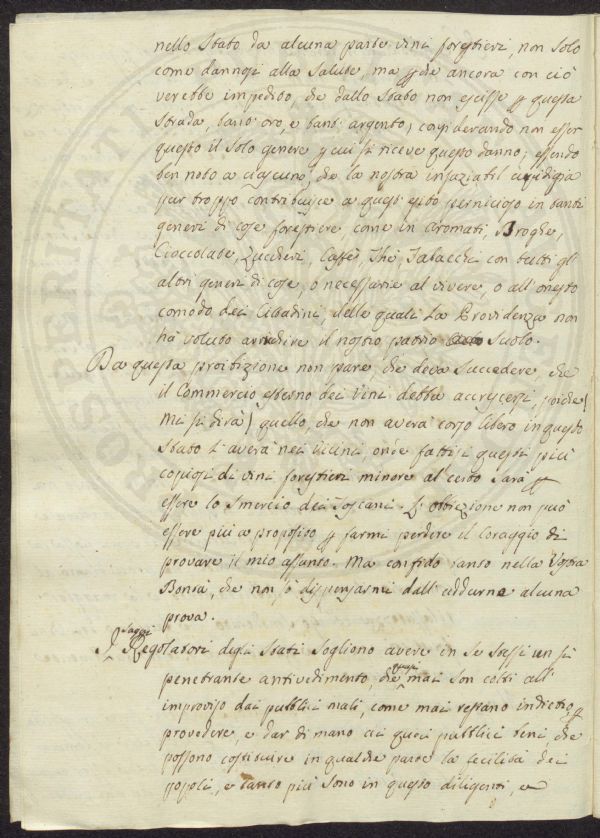 nello Stato da alcuna parte vini forestieri, non solo
come dannosi alla Salute, ma p che ancora con ciò
verebbe impedito, che dallo Stato non escisse p questa
strada, tant' oro, e tant' argento; considerando non esser
questo il solo genere p cui si riceve questo danno; essendo
ben noto a ciascuno, che la nostra insaziabil cupidigia
pur troppo contribuisce a quest' esito pernicioso in tanti
generi di cose forestiere come in Aromati, Droghe,
Cioccolate, Zuccheri, Caffè, Thè, Tabacchi con tutti gl'
altri generi di cose, o necessarie al vivere, o all' onesto
comodo dei Cittadini, delle quali la Providenza non
hà voluto arridire il nostro patrio Suolo.
Da questa proibizione non pare che deva succedere, che
il Commercio esterno dei Vini debba accrescersi, poiche (
mi si dirà) quello, che non averà corso libero in questo
Stato l' averà nei vicini, onde fattisi questi più
copiosi di vini forestieri minore al certo sarà p
essere lo smercio dei Toscani. L' obbiezione non può
essere più a proposito p farmi perdere il Coraggio di
provare il mio assunto. Ma confido tanto nella Vostra
Bontà, che non sò dispensarmi dall' addurne alcuna
prova.
saggi
I Regolatori degli Stati sogliono avere in se stessi un sì
quasi
penetrante antivedimento, che mai son colti all'
improviso dai pubblici mali, come mai restano indietro p
provedere, e dar di mano ai quei pubblici beni, che
possono costituire in qualche parte la felicità dei
popoli, e tanto più sono in questo diligenti, e